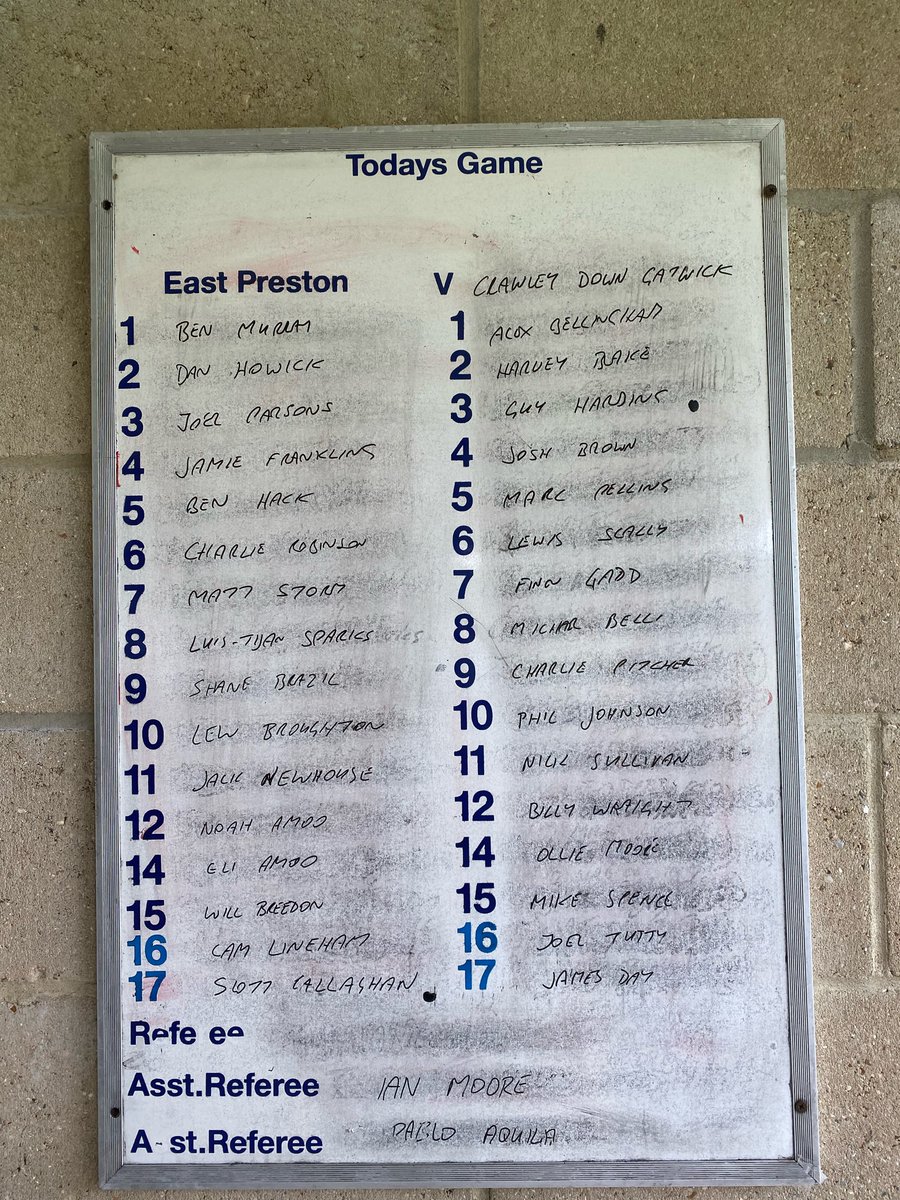 Todays Game
East Preston V CRAWLEY DOWN GATWICK
1 BEN MURRAY 1 ALEX BELLINGHAM
2 DAN HOWICK 2 HARVEY BLAKE
3 JOEL PARSONS 3 GUY HARDING
4 JAMIE FRANKLING 4 JOSH BROWN
5 BEN HACK 5 MARC PELLING
6 CHARLIE ROBINSON 6 LEWIS SCALLY
7 MATT STORY 7 FINN GADD
8 LUIS-TIJAN SPARKS 8 BELL
9 SHANE BRAZIL 9 CHARLIE PITCHER
10 LEW BROUGHTON 10 PHIL JOHNSON
11 JACK NEWHOUSE 11 SULLIVAN
12 NOAH AMOO 12 BILLY WRAIGHT
14 ELI AMOO 14 OLLIE MOORE
15 WILL BREEDON 15 MIKE SPENCE
16 CAM LINEHAM 16 JOEL TUTTY
17 SCOTT CALLAGHAN 17 JAMES DAY
Refe ee
Asst.Referee IAN MOORE
A st.Referee PABLO AQUILA